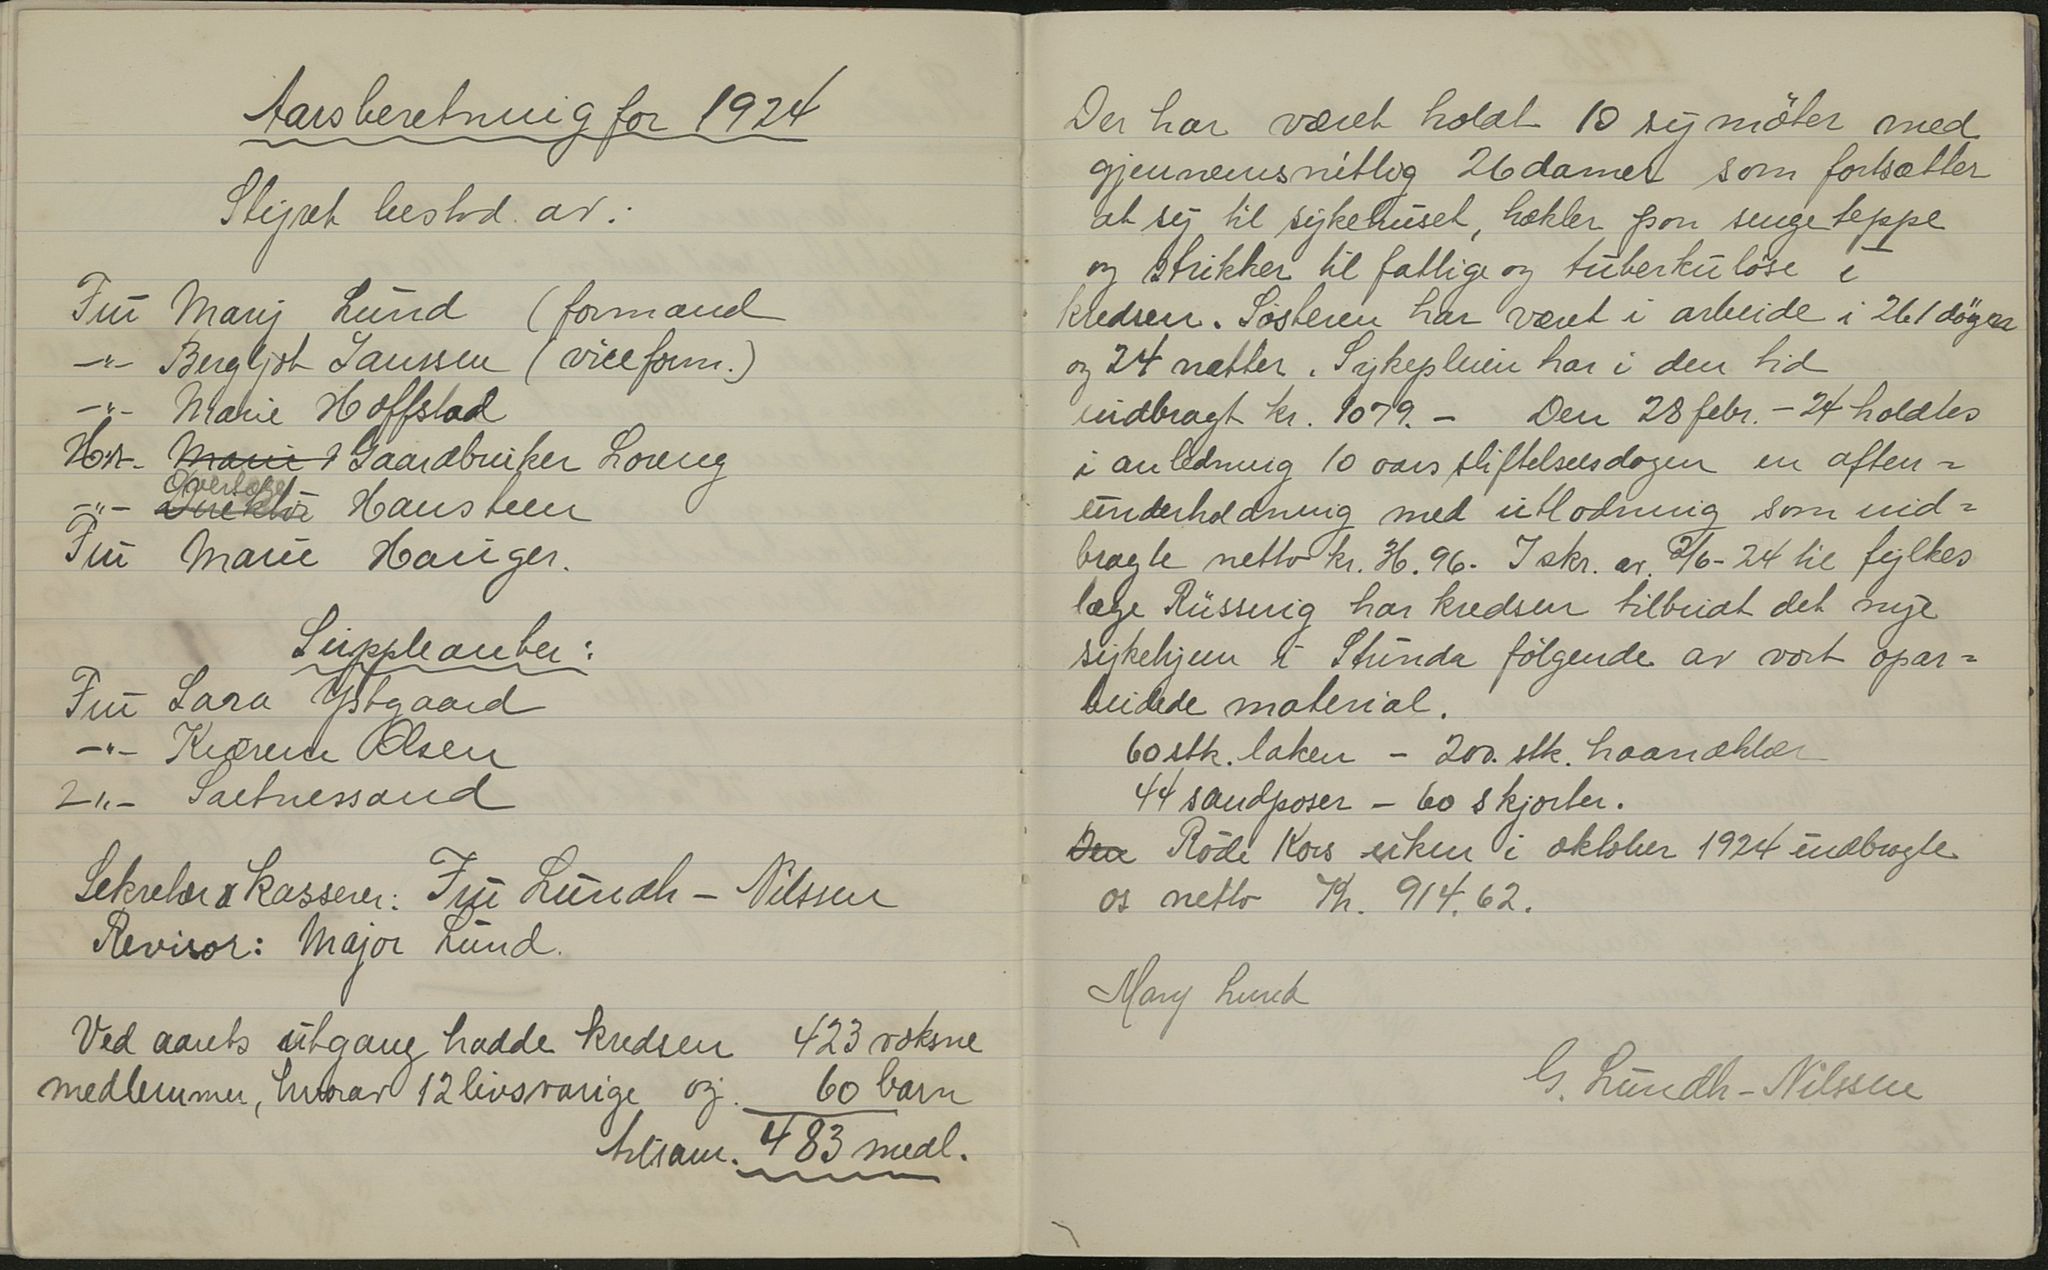 Aarsberetning for 1924
Styret bestod av:
Fru Mary Lund (formand
-"- Bergljot Janssen (viceform.)
-"- Marie Hoffstad
Hr. Marie Gaardbruker Loreng
Overlæge
-"- Direktör Hansteen
Fru Marie Hauger.
Suppleanter:
Fru Sara Ystgaard
-"- Kvarenc Olsen
-"- Saetnessand
Sekretær & Kasserer: Fru Lundh - Nilssen
Revisor: Major Lund.
Ved aarets utgang hadde kredsen 423 voksne
medlemmer, hvorav 12 livsvarige og 60 barn
tilsam. 483 medl.
Der har været holdt 10 symöter med
gjennemsnitlig 26 damer som fortsætter
at sy til sykehuset, hekler paa sengeteppe
og strikker til fattige og tuberkulöse i
kredsen. Søsteren har været i arbeide i 261 døgn
og 24 nætter. Sykepleien har i den tid
indbragt kr. 1079.- Den 28 febr. - 24 holdtes
i anledning 10 aars stiftelsesdagen en aften=
underholdning med utlodning som ind=
bragte netto kr. 36.96. I skr. av 2/6 - 24 til fylkes
læge Rüssurig har kredsen tilbudt det nye
sykehjem i Strinda følgende av vort opar=
beidede material.
60 stk. laken - 200. stk. haandklær
44 sandposer - 60 skjorter.
Den Röde Kors uken i oktober 1924 indbragte
os netto Kr. 914.62.
Mary Lund
G. Lundh - Nilssen